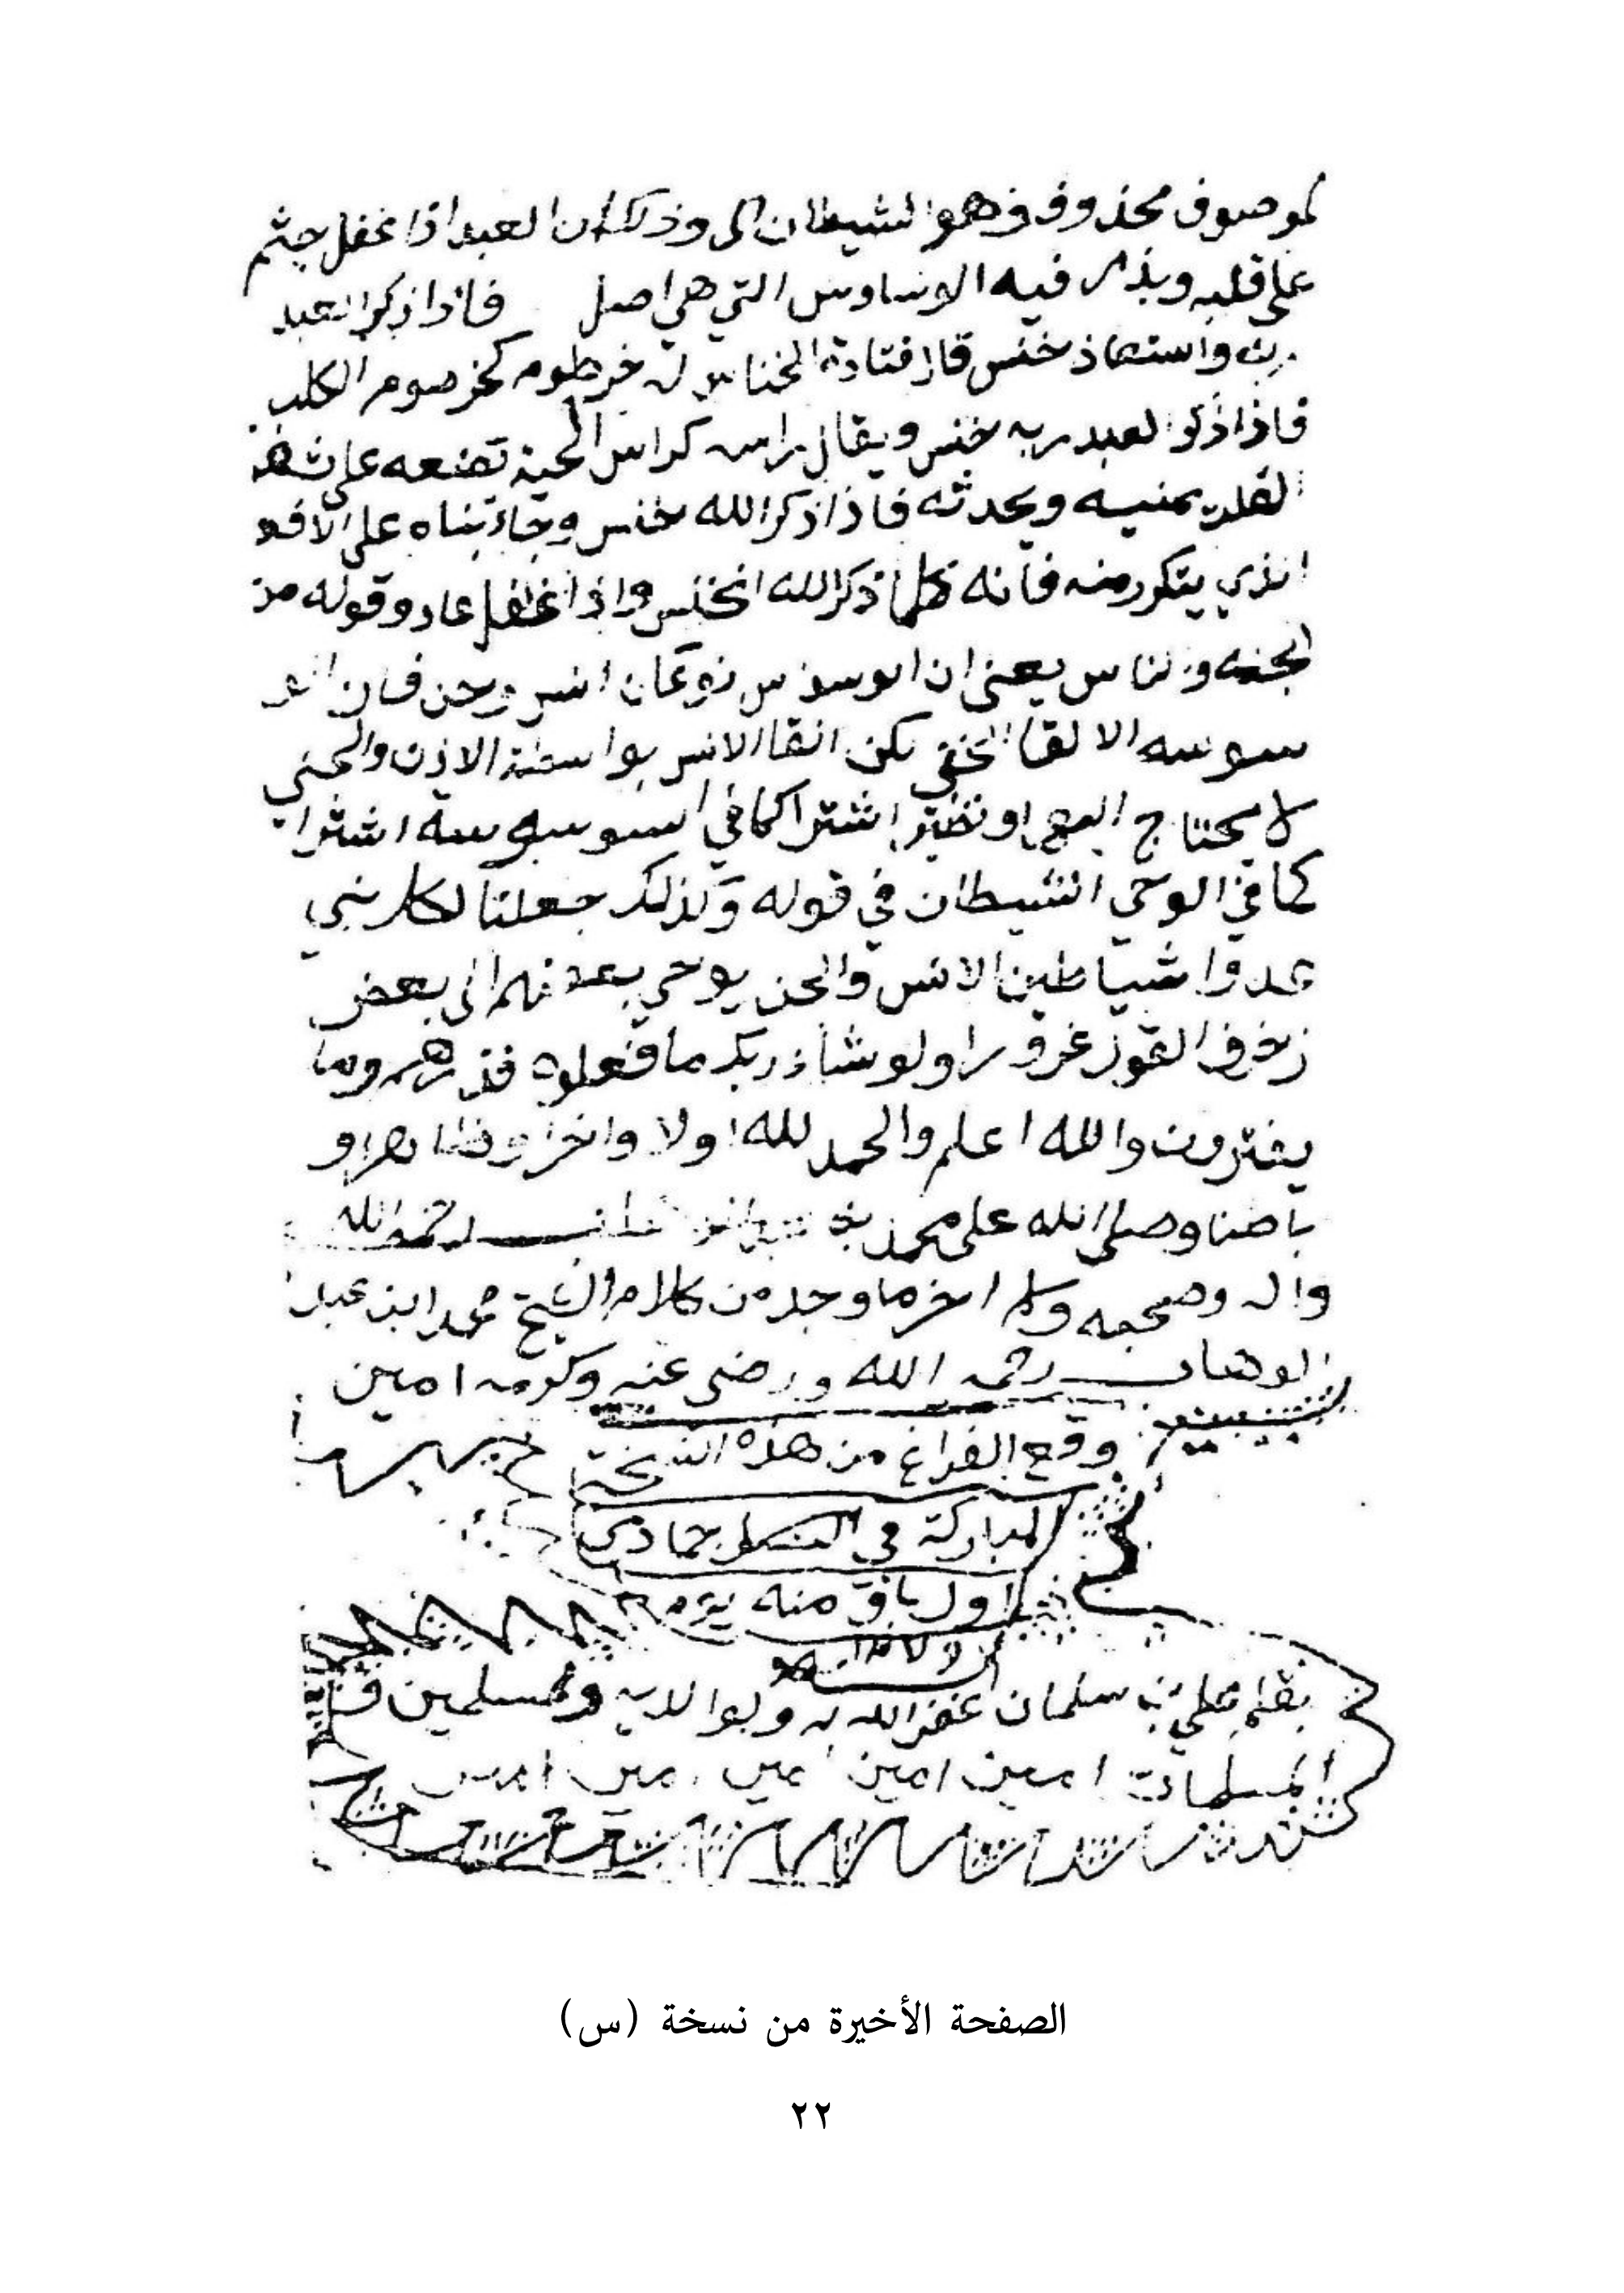 لموصوف محذوف وهو الشيطان الى وذلك ان العبد اذا غفل جثم
على قلبه وبذر فيه الوساوس التي هي اصل فاذا ذكر العبد
ربه واستعاذ خنس قال قتادة الخناس له خرطوم كخرصوم الكلب
فاذا ذكر العبد ربه خنس ويقال راسه كراس الحية تضعه على
القلب يمنيه ويحدثه فاذا ذكر الله خنس وجاء بناه على
الذي يتكرر منه فانه كلما ذكر الله انخنس واذا غفل عاد وقوله من
الجنه والناس يعني ان نوعان انس وجن فان
الالقا الخفي لكن القا الانس بواسطة الاذن والجني
لا يحتاج اليها ونظير اشتراكهما في اشترا
كما في الوحي الشيطان في قوله وكذلك جعلنا لكل نبي
عدوا شياطين الانس والجن يوحي بعضهم الى بعض
زخرف القول غرورا ولو شاء ربك ما فعلوه فذرهم وما
يفترون والله اعلم والحمد لله اولا واخرا وظاهرا و
باطنا وصلى الله على محمد رحمه الله
واله وصحبه وسلم اخر ما وجد من كلام الشيخ محمد ابن عبد
الوهاب رحمه الله ورضي عنه وكرمه امين
وقع الفراغ من هذه النسخة
المباركة في جمادى
اول باق منه يوم
بقلم علي بن سلمان غفر الله له ولوالديه والمسلمين
المسلمات امين امين امين امين امين
الصفحة الأخيرة من نسخة (س)
٢٢